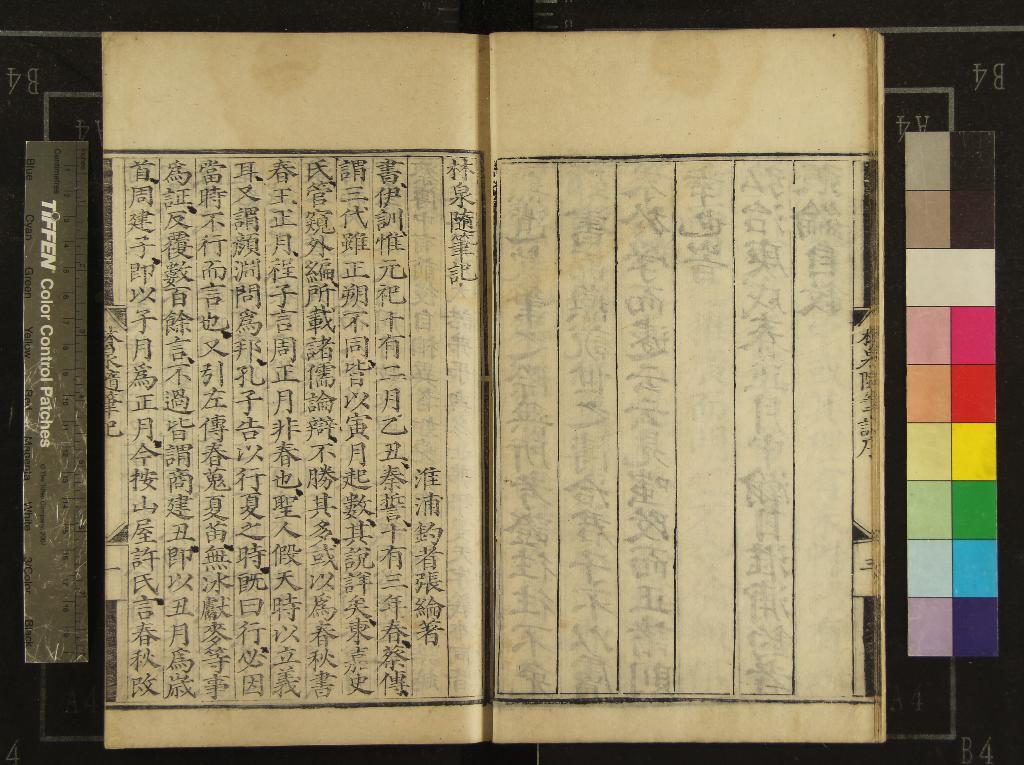 林泉隨筆記
淮浦釣者張綸著
書伊訓惟元祀十有二月乙丑秦誓十有三年春蔡傳
謂三代雖正朔不同皆以寅月起數其說詳矣東嘉史
氏管窺外編所載諸儒論辯不勝其多或以爲春秋書
春王正月程子言周正月非春也聖人假天時以立義
耳又謂顏淵問爲邦孔子告以行夏之時旣曰行必因
當時不行而言也又引左傳春蒐夏苗無冰獻麥等事
爲証反覆數百餘言不過皆謂商建丑即以丑月爲歲
首周建子即以子月爲正月今按山屋許氏言春秋改
林泉隨筆記
一
林泉隨筆記序
三
TIFFEN Color Control Patches
Centimetres
Blue
Cyan
Green
Yellow
Red
Magenta
White
3/Color
Black
B4
A4
B4
A4
A4
A4
4
B4